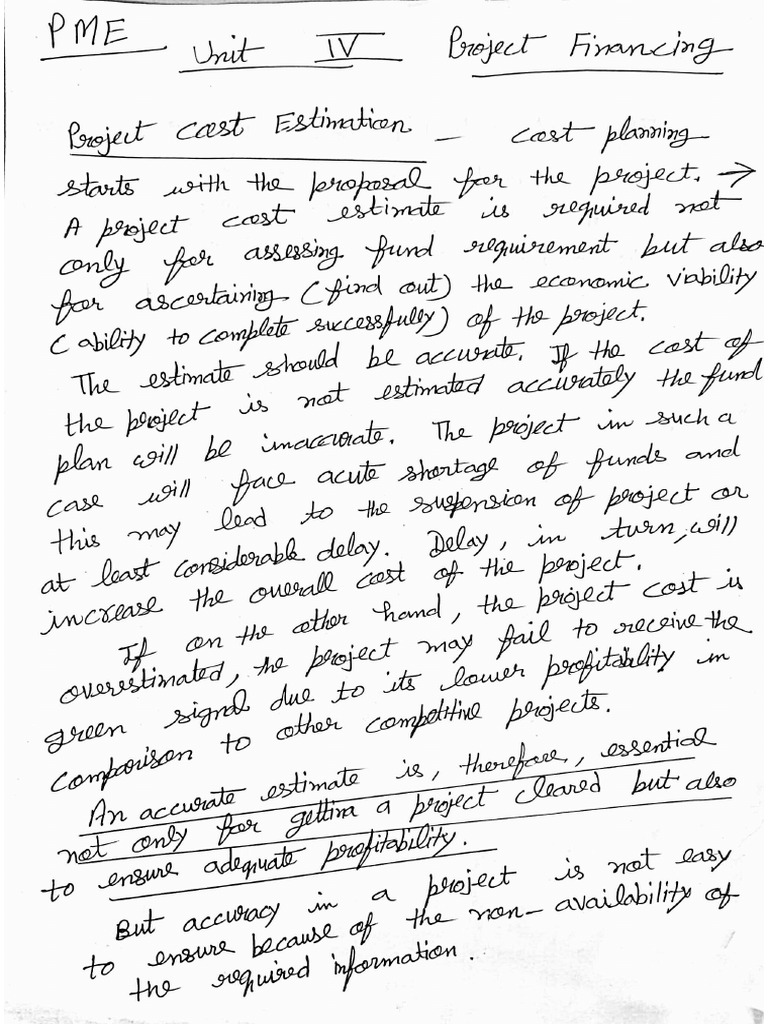 PME
Unit IV Project Financing
Project Cost Estimation - Cost planning
starts with the proposal for the project. →
A project cost estimate is required not
only for assessing fund requirement but also
for ascertaining (find out) the economic viability
(ability to complete successfully) of the project.
The estimate should be accurate. If the cost of
the project is not estimated accurately the fund
plan will be inaccurate. The project in such a
case will face acute shortage of funds and
this may lead to the suspension of project or
at least considerable delay. Delay, in turn, will
increase the overall cost of the project.
If on the other hand, the project cost is
overestimated, the project may fail to receive the
green signal due to its lower profitability in
comparison to other competitive projects.
An accurate estimate is, therefore, essential
not only for getting a project cleared but also
to ensure adequate profitability.
But accuracy in a project is not easy
to ensure because of the non-availability of
the required information.